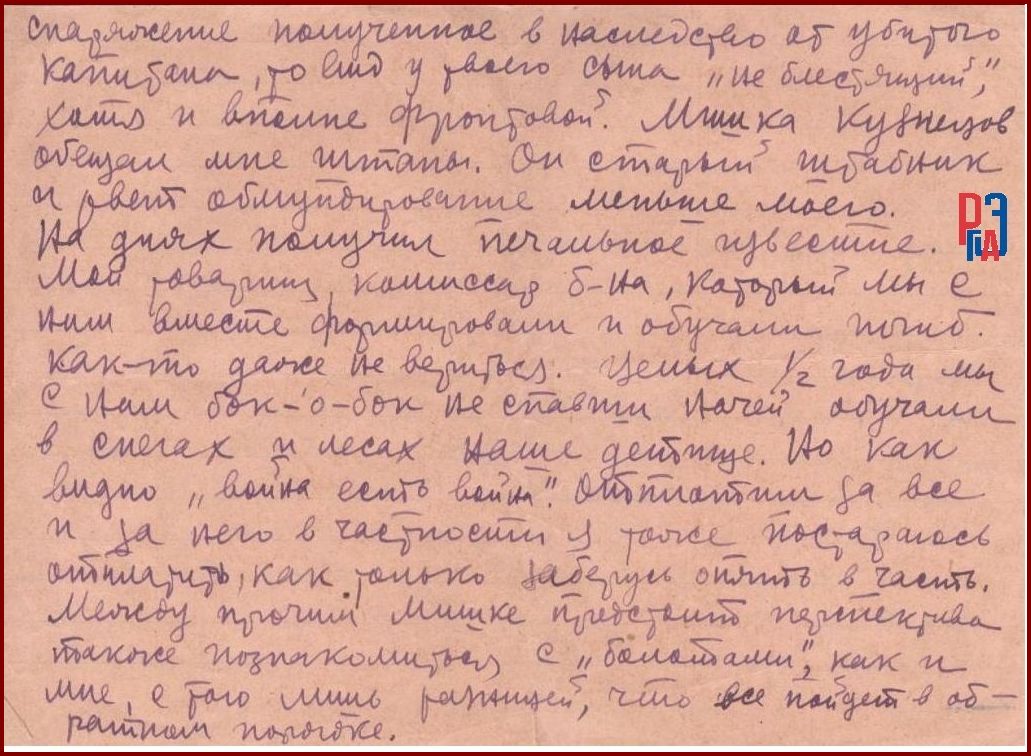 снаряжение полученное в наследство от убитого
капитана, то вид у твоего сына „не блестящий",
хотя и вполне фронтовой. Мишка Кузнецов
обещал мне штаны. Он старый штабник
и рвет обмундирование меньше моего.
На днях получил печальное известие.
Мой товарищ, комиссар б-на, который мы с
ним вместе формировали и обучали погиб.
Как-то даже не вериться. Целых 1/2 года мы
с ним бок-о-бок не спавши ночей обучали
в снегах и лесах наше детище. Но как
видно „война есть война". Отплатим за все
и за него в частности я тоже постараюсь
отплатить, как только заберусь опять в часть.
Между прочим Мишке предстоит перспектива
также познакомиться с „болотами", как и
мне, с той лишь разницей, что все пойдет в об-
ратном порядке.
РГАЭ